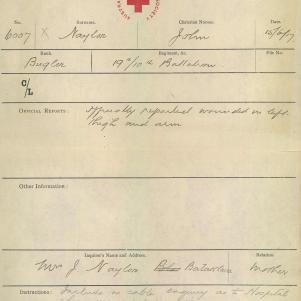 SOCIETY
No. Surname. Christian Names. Date.
6007 X Naylor John
Rank. Regiment, &c. File No.
Bugler 19th/10th Battalion
C/L
OFFICIAL REPORTS: Officially reported wounded in left
thigh and arm
Other Information:
Inquirer's Name and Address. Relation
Mrs J Naylor Bataklava Mother
Instructions: Include in cable enquiry as to Hospital